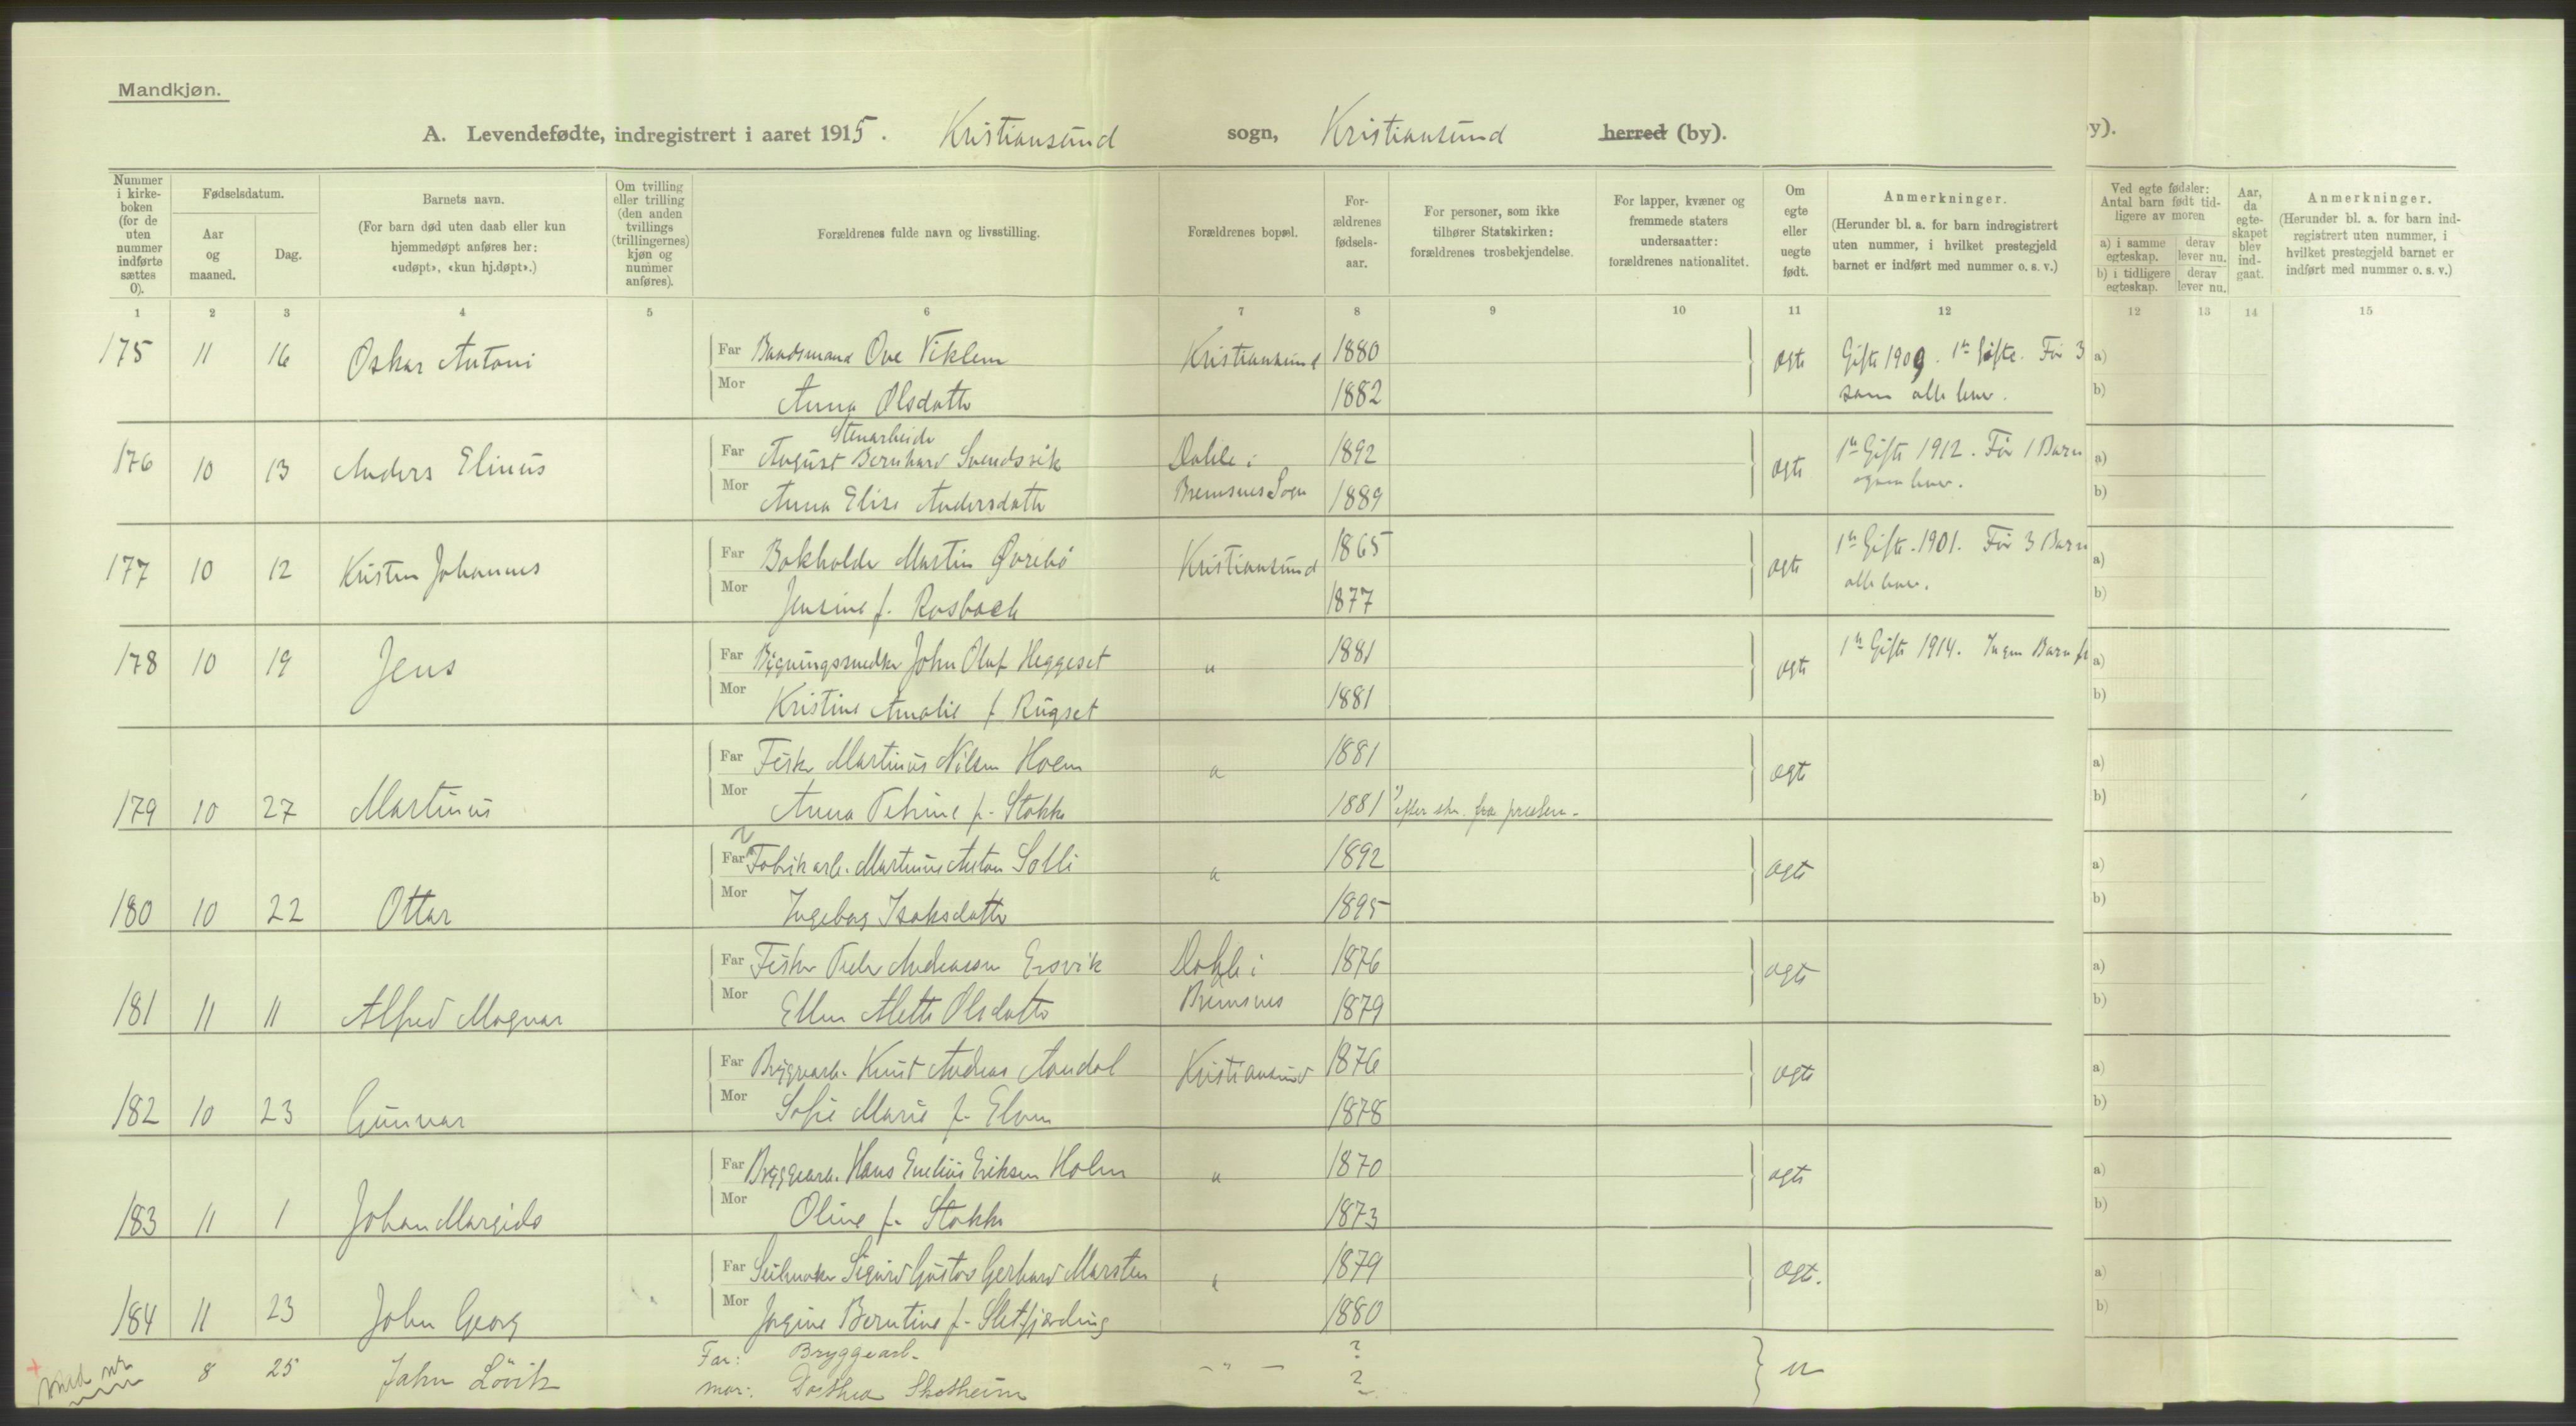 Mandkjøn.
A. Levendefødte, indregistrert i aaret 1915. Kristiansund sogn, Kristiansund herred (by).
y).
Nummer i kirkeboken (for de uten nummer indførte sættes 0).
Fødselsdatum.
Aar og maaned.
Dag.
Barnets navn.
(For barn død uten daab eller kun hjemmedøpt anføres her: «udøpt», «kun hj.døpt».)
Om tvilling eller trilling (den anden tvillings (trillingernes) kjøn og nummer anføres).
Forældrenes fulde navn og livsstilling.
Forældrenes bopæl.
Forældrenes fødselsaar.
For personer, som ikke tilhører Statskirken: forældrenes trosbekjendelse.
For lapper, kvæner og fremmede staters undersaatter: forældrenes nationalitet.
Om egte eller uegte født.
Anmerkninger.
(Herunder bl. a. for barn indregistrert uten nummer, i hvilket prestegjeld barnet er indført med nummer o. s. v.)
Ved egte fødsler: Antal barn født tidligere av moren
a) i samme egteskap.
derav lever nu.
b) i tidligere egteskap.
derav lever nu.
Aar, da egteskapet blev indgaat.
Anmerkninger.
(Herunder bl. a. for barn indregistrert uten nummer, i hvilket prestegjeld barnet er indført med nummer o. s. v.)
1 2 3 4 5 6 7 8 9 10 11 12 12 13 14 15
175 11 16 Oskar Antoni Far Baadsmand Ove Viklem Kristiansund 1880 egte Gifte 1909. 1ste Gifte. Før 3 a)
Mor Anna Olsdatter 1882 som alle lever. b)
Stenarbeider
176 10 13 Anders Elinus Far August Bernhard Svendsvik Dahle i 1892 egte 1ste Gifte 1912. Før 1 Barn a)
Mor Anna Elise Andersdatter Bremsnes Sogn 1889 b)
177 10 12 Kristen Johannes Far Bokholder Martin Øvrebö Kristiansund 1865 egte 1ste Gifte. 1901. Før 3 Barn a)
Mor Jensine f. Rosbach 1877 alle lever. b)
178 10 19 Jens Far Bygningssnedker John Olaf Heggeset " 1881 egte 1ste Gifte 1914. Ingen Barn før a)
Mor Kristine Amalie f. Rugset 1881 b)
179 10 27 Martinus Far Fisker Martinus Nilsen Hoem " 1881 egte a)
Mor Anna Petrine f. Stokke 1881 b)
180 10 22 Ottar Far Fabrikarb. Martinus Anton Solli " 1892 egte a)
Mor Ingeborg Isaksdatter 1895 b)
181 11 11 Alfred Magnar Far Fisker Peder Andreasen Ersvik Dahle i 1876 egte a)
Mor Ellen Alette Olsdatter Bremsnes 1879 b)
182 10 23 Gunnar Far Bryggearb. Knut Andreas Aandal Kristiansund 1876 egte a)
Mor Sofie Marie f. 1878 b)
183 11 1 Johan Margido Far Bryggearb. Hans Eriksen Holm " 1870 egte a)
Mor Oline f. Stokke 1873 b)
184 11 23 John Georg Far Seilmaker Sigurd Gustav Gerhard Marsten " 1879 egte. a)
Mor Jørgine Berntine f. Sletfjerding 1880 b)
uten nr 8 25 John Lövik Far: Bryggearb. – " – ? u
mor: Dorthea Skotheim ?